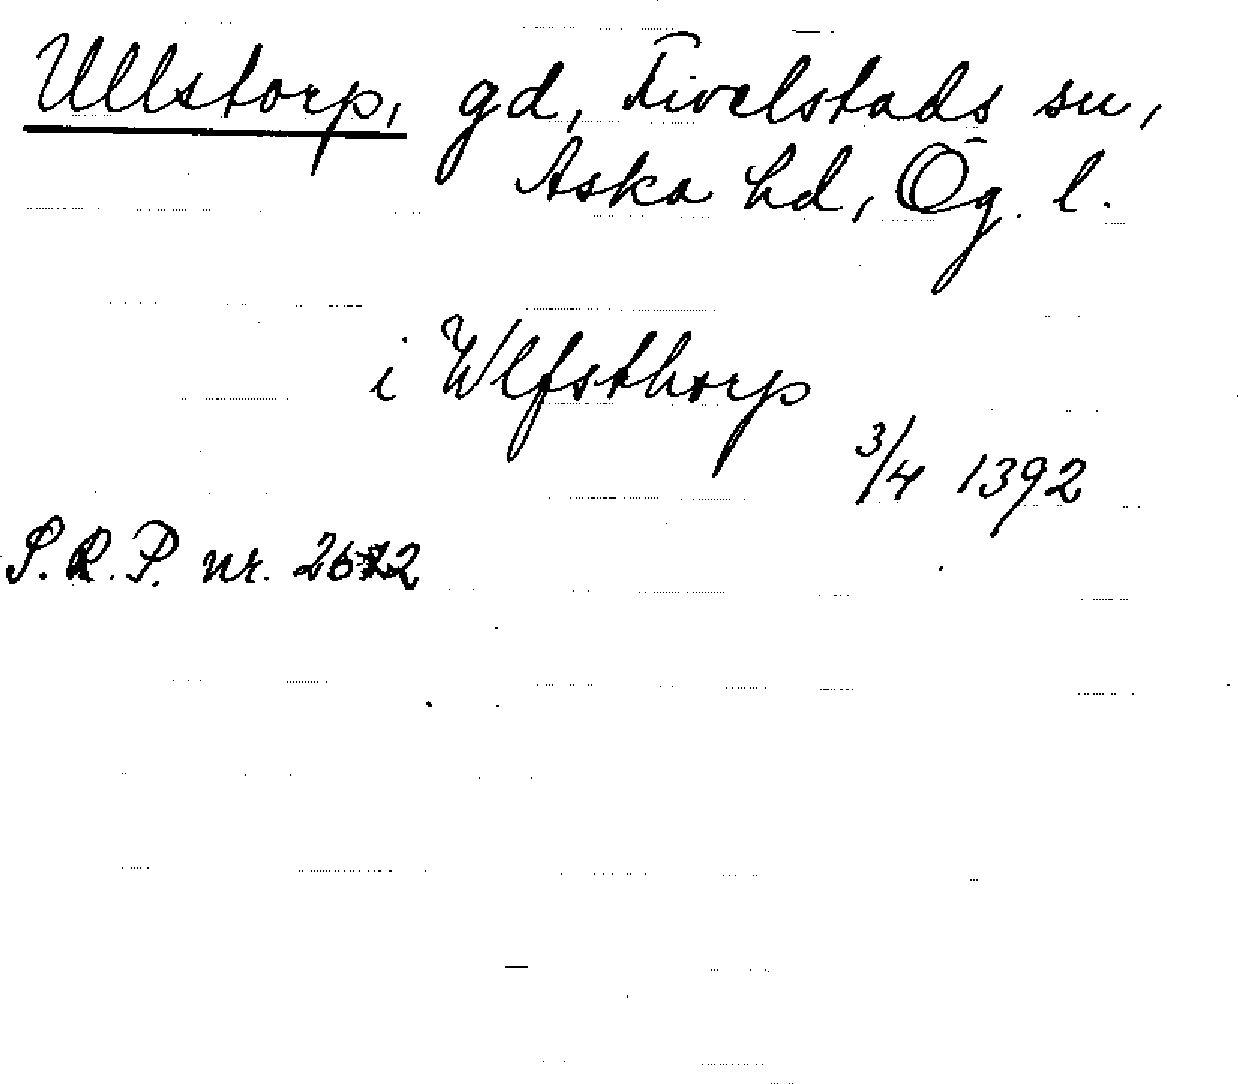 Ullstorp, gd, Fivelstads sn,
Aska hd, Ög. l.
i Wlfsthorp
3/4 1392
S.R.P. nr.